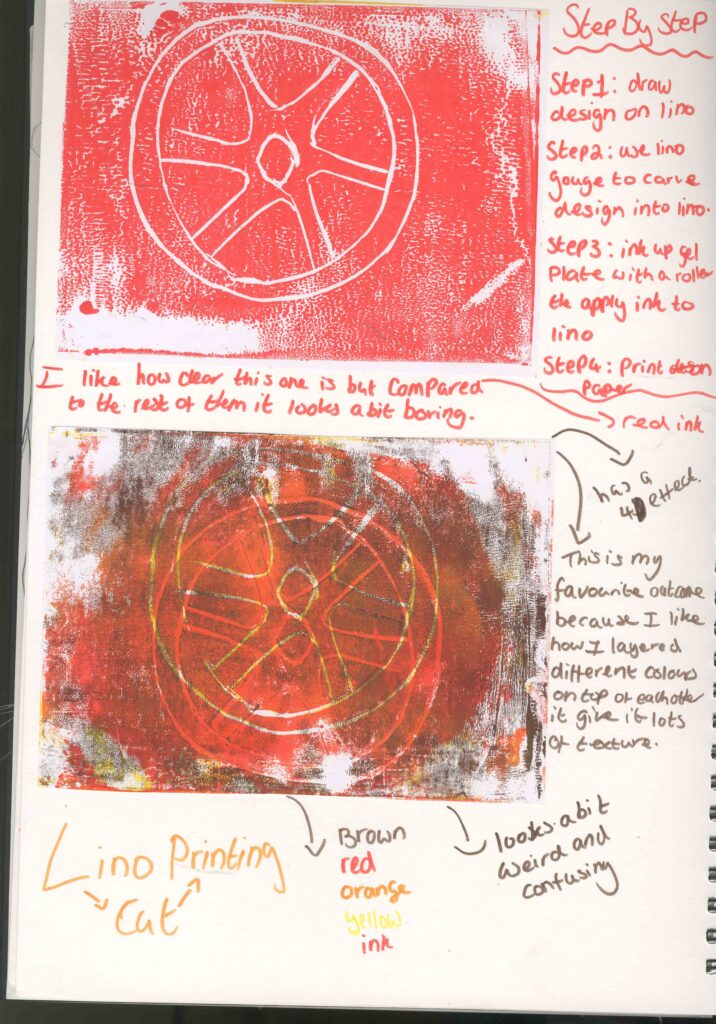 Step By Step
Step 1: draw
design on lino
Step 2: use lino
gouge to carve
design into lino.
Step 3: ink up gel
Plate with a roller
apply ink to
lino
Step 4: Print design
Paper
I like how clear this one is but compared
to the rest of them it looks a bit boring.
red ink
has a
4D effect.
This is my
favourite outcome
because I like
how I layered
different colours
on top of eachother
it give it lots
of texture.
Lino Printing
Cut
Brown
red
orange
yellow
ink
looks a bit
weird and
confusing